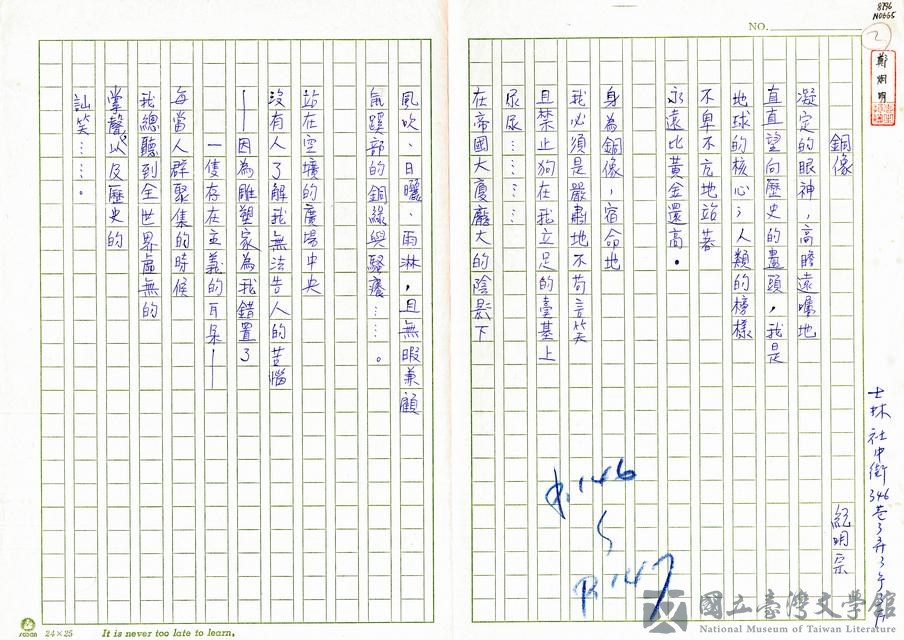 8796
N0665
NO.
2
鄭炯明
銅像
紀明宗
凝定的眼神，高瞻遠矚地
直直望向歷史的盡頭，我是
地球的核心；人類的榜樣
不卑不亢地站著
永遠比黃金還高。
身為銅像，宿命地
我必須是嚴肅地不苟言笑
且禁止狗在我立足的臺基上
尿尿…………
在帝國大廈龐大的陰影下
風吹、日曬、雨淋，且無暇兼顧
鼠蹊部的銅綠與騷癢……。
站在空曠的廣場中央
沒有人了解我無法告人的苦惱
——因為雕塑家為我錯置了
一隻存在主義的耳朵——
每當人群聚集的時候
我總聽到全世界虛無的
掌聲以及歷史的
訕笑……。
士林社中街346巷3弄3號
P.146
P.147
24×25
It is never too late to learn,
國立臺灣文學館
National Museum of Taiwan Literature